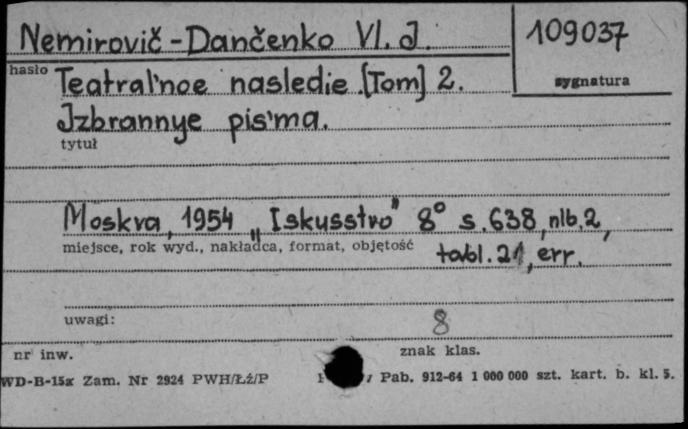 Nemirovič-Dančenko Vl. J. 109037
hasło
sygnatura
Teatral'noe nasledie. [Tom] 2.
Jzbrannye pis'ma.
tytuł
Moskva, 1954 „Iskusstvo" 8° s. 638, nlb. 2,
miejsce, rok wyd., nakładca, format, objętość
tabl. 21, err.
uwagi:
8
nr inw. znak klas.
WD-B-15x Zam. Nr 2924 PWH/Łź/P Pab. 912-64 1 000 000 szt. kart. b. kl. 5.